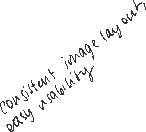 consistent image layout,
easy usability